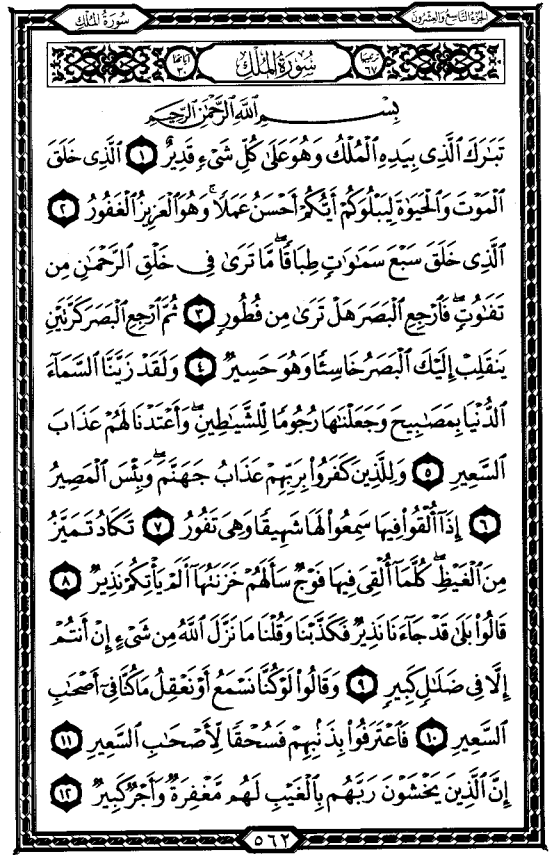 الجزء التاسع والعشرون
سورة الملك
ترتيبها ٦٧
سورة الملك
آياتها ٣٠
بِسْمِ اللَّهِ الرَّحْمَٰنِ الرَّحِيمِ
تَبَٰرَكَ ٱلَّذِى بِيَدِهِ ٱلْمُلْكُ وَهُوَ عَلَىٰ كُلِّ شَىْءٍ قَدِيرٌ ١ ٱلَّذِى خَلَقَ
ٱلْمَوْتَ وَٱلْحَيَوٰةَ لِيَبْلُوَكُمْ أَيُّكُمْ أَحْسَنُ عَمَلًا ۚ وَهُوَ ٱلْعَزِيزُ ٱلْغَفُورُ ٢
ٱلَّذِى خَلَقَ سَبْعَ سَمَٰوَٰتٍ طِبَاقًا ۖ مَّا تَرَىٰ فِى خَلْقِ ٱلرَّحْمَٰنِ مِن
تَفَٰوُتٍ ۖ فَٱرْجِعِ ٱلْبَصَرَ هَلْ تَرَىٰ مِن فُطُورٍ ٣ ثُمَّ ٱرْجِعِ ٱلْبَصَرَ كَرَّتَيْنِ
يَنقَلِبْ إِلَيْكَ ٱلْبَصَرُ خَاسِئًا وَهُوَ حَسِيرٌ ٤ وَلَقَدْ زَيَّنَّا ٱلسَّمَآءَ
ٱلدُّنْيَا بِمَصَٰبِيحَ وَجَعَلْنَٰهَا رُجُومًا لِّلشَّيَٰطِينِ ۖ وَأَعْتَدْنَا لَهُمْ عَذَابَ
ٱلسَّعِيرِ ٥ وَلِلَّذِينَ كَفَرُوا۟ بِرَبِّهِمْ عَذَابُ جَهَنَّمَ ۖ وَبِئْسَ ٱلْمَصِيرُ
٦ إِذَآ أُلْقُوا۟ فِيهَا سَمِعُوا۟ لَهَا شَهِيقًا وَهِىَ تَفُورُ ٧ تَكَادُ تَمَيَّزُ
مِنَ ٱلْغَيْظِ ۖ كُلَّمَآ أُلْقِىَ فِيهَا فَوْجٌ سَأَلَهُمْ خَزَنَتُهَآ أَلَمْ يَأْتِكُمْ نَذِيرٌ ٨
قَالُوا۟ بَلَىٰ قَدْ جَآءَنَا نَذِيرٌ فَكَذَّبْنَا وَقُلْنَا مَا نَزَّلَ ٱللَّهُ مِن شَىْءٍ إِنْ أَنتُمْ
إِلَّا فِى ضَلَٰلٍ كَبِيرٍ ٩ وَقَالُوا۟ لَوْ كُنَّا نَسْمَعُ أَوْ نَعْقِلُ مَا كُنَّا فِىٓ أَصْحَٰبِ
ٱلسَّعِيرِ ١٠ فَٱعْتَرَفُوا۟ بِذَنۢبِهِمْ فَسُحْقًا لِّأَصْحَٰبِ ٱلسَّعِيرِ ١١
إِنَّ ٱلَّذِينَ يَخْشَوْنَ رَبَّهُم بِٱلْغَيْبِ لَهُم مَّغْفِرَةٌ وَأَجْرٌ كَبِيرٌ ١٢
٥٦٢